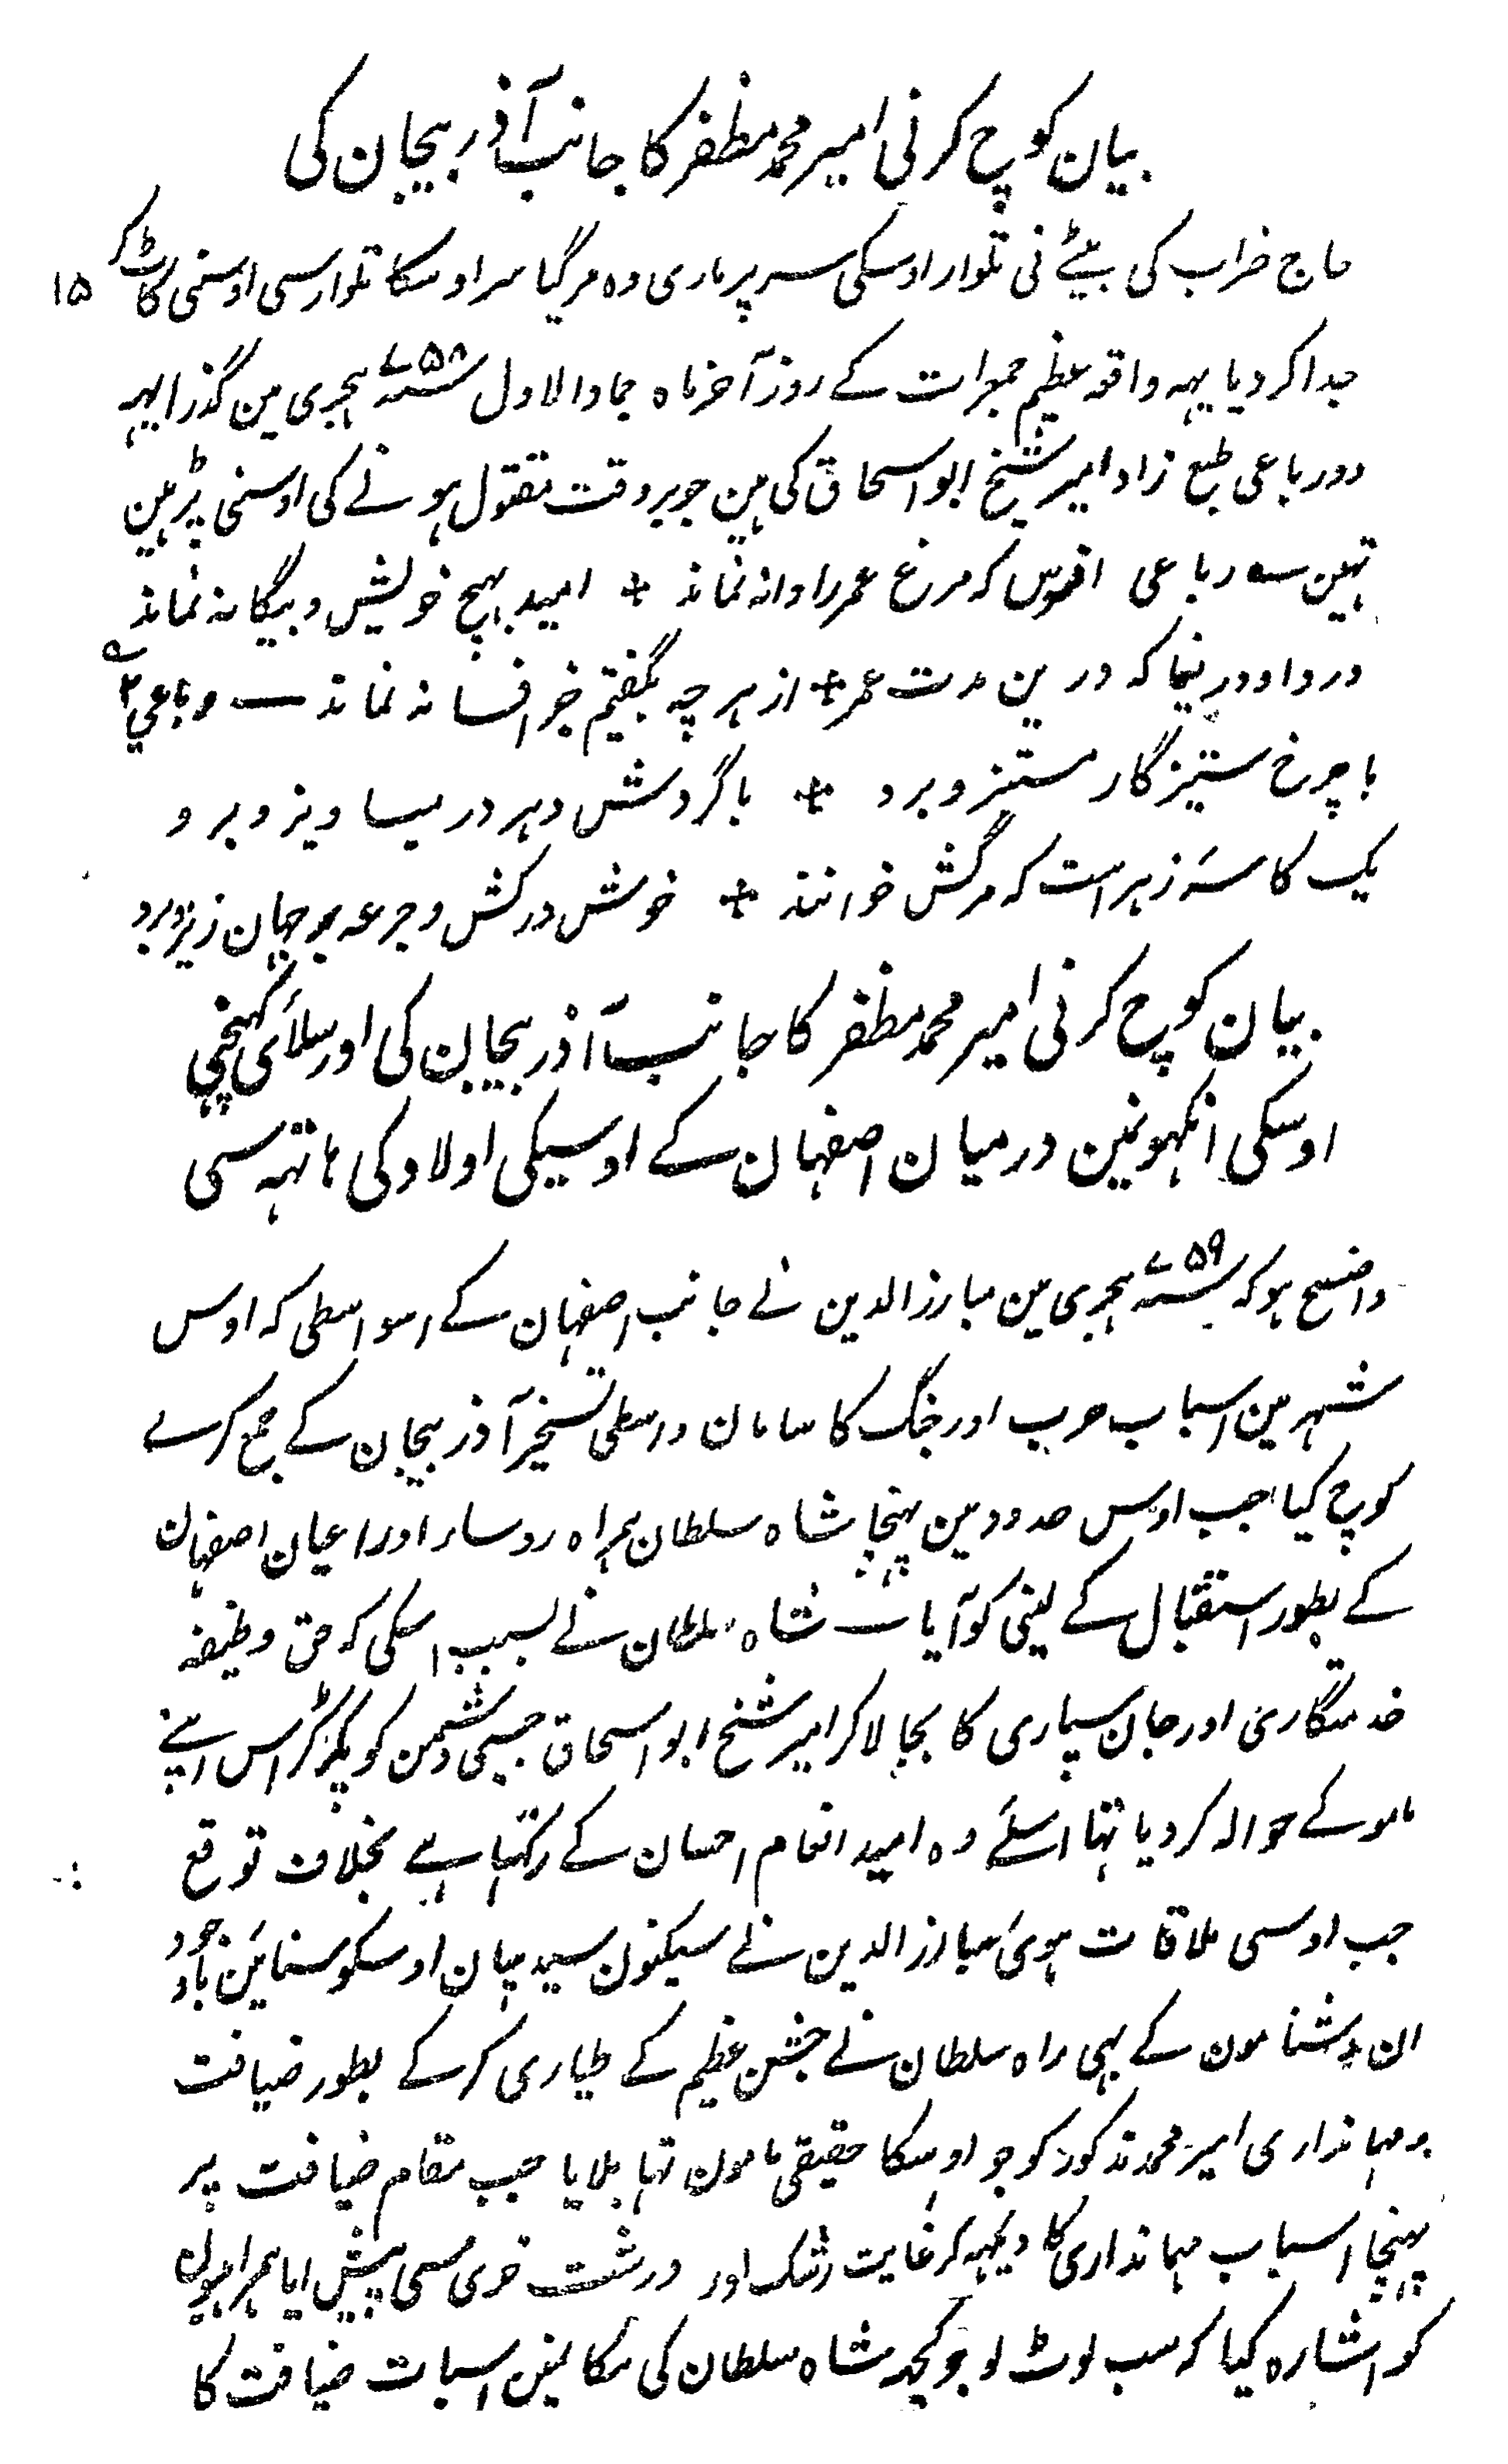 بیان کوچ کرنی امیر محمد مظفر کا جانب آذربیجان کی
حاج ضراب کی بیٹے نی تلوار اوسکی سر پر ماری وہ مر گیا سر اوسکا تلوار سی اوسنی کاٹ کر ۱۵
جدا کر دیا یہہ واقعہ عظیم جمعرات کے روز آخر ماہ جمادالاول ۷۵۸ سنہ ہجری مین گذرا یہہ
دو رباعی طبع زاد امیر شیخ ابو اسحاق کی ہین جو بروقت مقتول ہونے کی اوسنی پڑہین
تہین سہ رباعی افسوس کہ مرغ عمر را دانہ نماند + امید بہیچ خویش و بیگانہ نماند
دردا و دریغا کہ درین مدت عمر + از ہر چہ بگفتیم جز افسانہ نماند — رباعي ۲
با چرخ ستیزگار مستیز و برو + با گردش دہر در میاویز و برو
یک کاسۂ زہر است کہ مرگش خوانند + خوش درکش و جرعہ بر جہان ریز و برو
بیان کوچ کرنی امیر محمد مظفر کا جانب آذربیجان کی اور سلائی کہنچی
اوسکی انکہونمین درمیان اصفہان کے اوسیکی اولاد کی ہاتہہ سی
واضح ہو کہ ۷۵۹ سنہ ہجری مین مبارزالدین نے جانب اصفہان کے اسواسطی کہ اوس
شہر مین اسباب حرب اور جنگ کا سامان واسطی تسخیر آذربیجان کے جمع کرے
کوچ کیا جب اوس حدود مین پہنچا شاہ سلطان ہمراہ روساء اور اعیان اصفہان
کے بطور استقبال کے لینی کو آیا شاہ سلطان نے بسبب اسکی کہ حق وظیفہ
خدمتگاری اور جان سپاری کا بجا لا کر امیر شیخ ابو اسحاق جیسی دشمن کو پکڑ کر اس اپنے
ماموکے حوالہ کر دیا تہا اسلئے وہ امید انعام احسان کے رکہتا ہے بخلاف توقع
جب اوسی ملاقات ہوئی مبارزالدین نے سیکنون سیدہیان اوسکو سنائین باوجود
ان دشنامون کے بہی راہ سلطان نے جشن عظیم کے طیاری کر کے بطور ضیافت
و مہمانداری امیر محمد مذکور کو جو اوسکا حقیقی مامون تہا بلایا جب مقام ضیافت پر
پہنچا اسباب مہمانداری کا دیکہہ کر غایت رشک اور درشت خوی سی پیش ایا ہمراہیون
کو اشارہ کیا کہ سب لوٹ لو جو کچہہ شاہ سلطان کی مکانین اسبات ضیافت کا